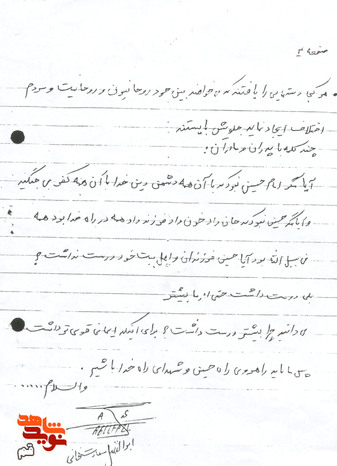 صفحه ۳
هر کجا دستهایی را یافتند که می‌خواهند بین خود روحانیون و روحانیت و مردم
اختلاف ایجاد نماید جلویش بایستند
چند کلمه با پدران و مادران:
آیا مگر امام حسین نبود که با آن همه دشمن دین خدا با آن همه کفر می جنگید
و آیا مگر حسین نبود که جان داد خون داد فرزند داد همه در راه خدا بود همه
فی سبیل الله بود آیا حسین فرزندان و اهل بیت خود دوست نداشت؟
بلی دوست داشت حتی از ما بیشتر
می دانید چرا بیشتر دوست داشت؟ برای اینکه ایمانی قوی تر داشت
پس ما باید راهروی راه حسین و شهدای راه خدا باشیم.
والسلام......
ابوالقاسم
نوید شاهد